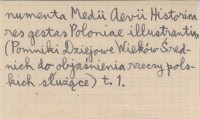 numenta Medii Aevii Historica
res gestas Poloniae illustrantia
(Pomniki Dziejowe Wieków Śred-
nich do objaśnienia rzeczy pols-
kich służące) t. 1.